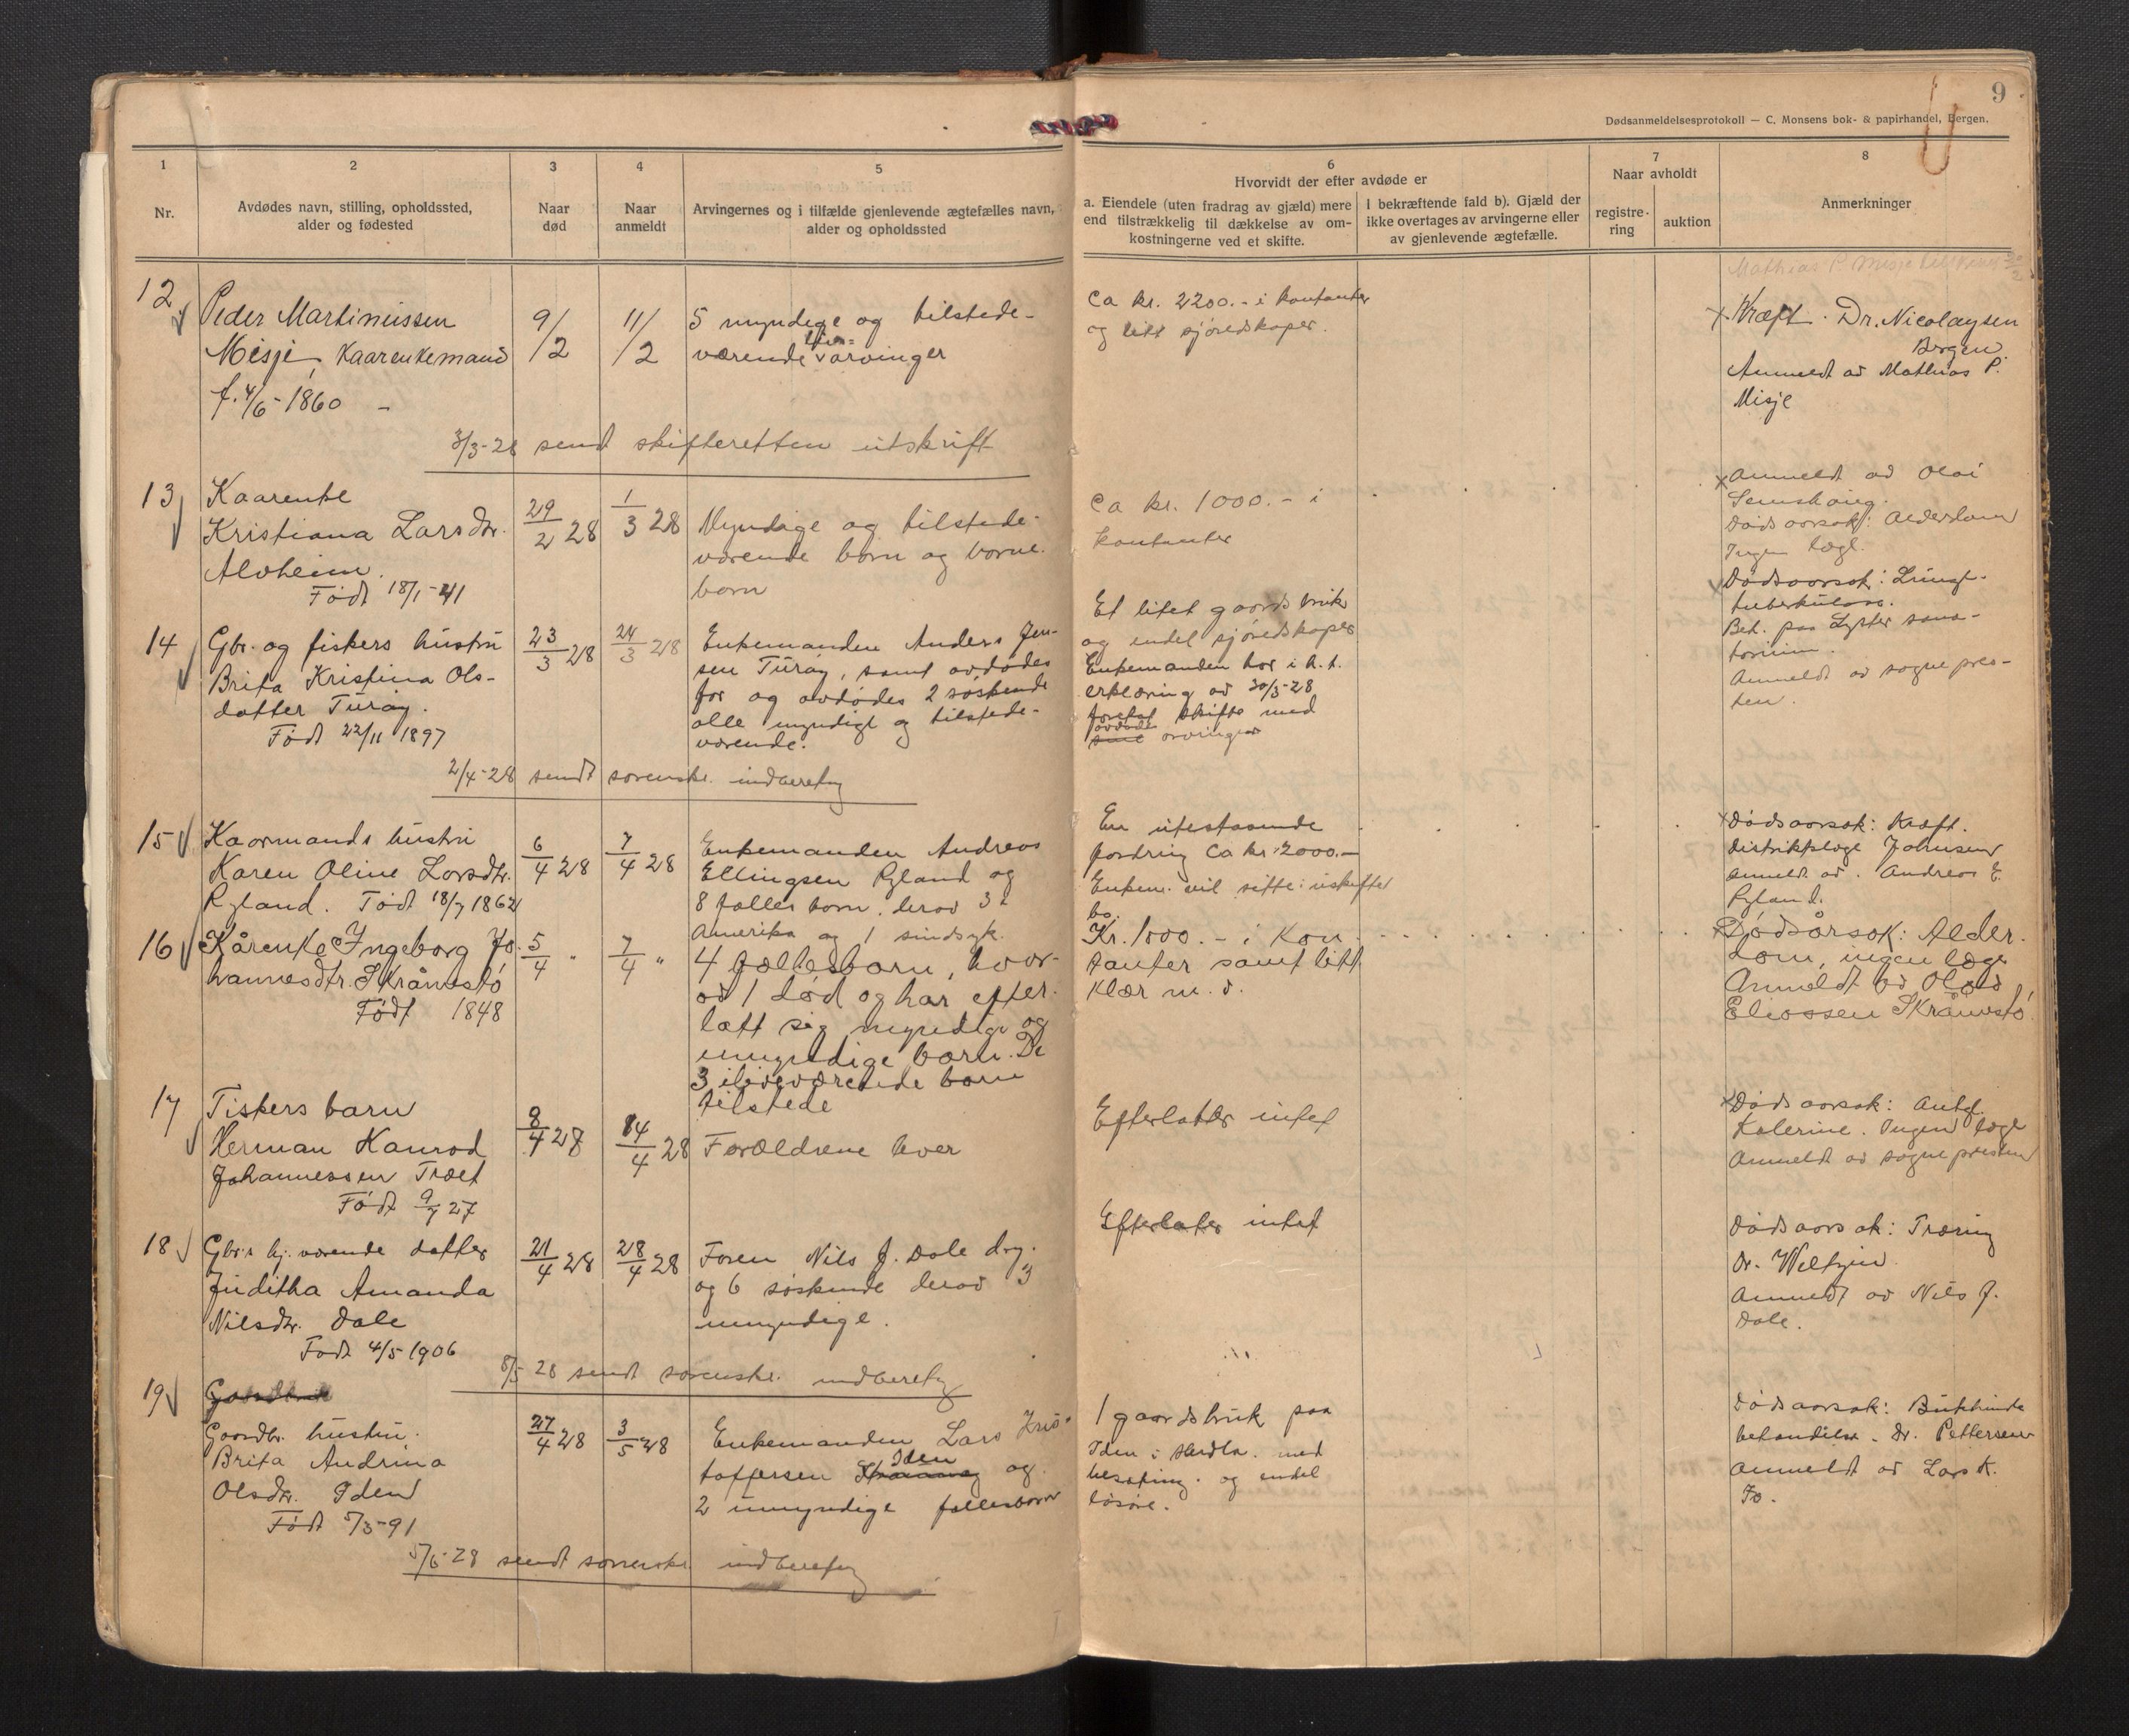 9
Dødsanmeldelsesprotokoll — C. Monsens bok- & papirhandel, Bergen.
1
Nr.
2
Avdødes navn, stilling, opholdssted,
alder og fødested
3
Naar
død
4
Naar
anmeldt
5
Arvingernes og i tilfælde gjenlevende ægtefælles navn,
alder og opholdssted
6
Hvorvidt der efter avdøde er
a. Eiendele (uten fradrag av gjæld) mere
end tilstrækkelig til dækkelse av om-
kostningerne ved et skifte.
I bekræftende fald b). Gjæld der
ikke overtages av arvingerne eller
av gjenlevende ægtefælle.
7
Naar avholdt
registre-
ring
auktion
8
Anmerkninger
12
Peder Martinussen
Misje, Kaarenkemand
f. 4/6 - 1860 -
9/2
11/2
5 myndige og tilstede-
værende livs= arvinger
Ca kr. 2200.- i kontanter
og litt sjøredskaper.
Mathias P. Misje
Kræft. Dr. Nicolaysen
Bergen.
Anmeldt av Mathias P.
Misje
3/3-28 sendt skifteretten utskrift
13
Kaarenke
Kristiana Larsdtr.
Alvheim.
Født 18/1-41
29/2 28
1/3 28
Myndige og tilstede-
værende barn og barne-
barn
Ca kr. 1000.- i
kontanter
Anmeldt av Olai
Dødsaarsak: Alderdom
Ingen læge.
14
Gbr. og fiskers hustru
Brita Kristina Ols-
datter Turøy.
Født 22/11 1897
23/3 28
24/3 28
Enkemanden Anders Jen-
sen Turøy, samt avdødes
far og avdødes 2 søskende
alle myndige og tilstede-
værende.
Et litet gaardsbruk
og endel sjøredskaper
Enkemanden har i h.t.
erklæring av 30/3-28
foretat skifte med
avdødes
sine arvinger
Dødsaarsak: Lunge-
tuberkulose.
Beh. paa Lyster sana-
torium.
Anmeldt av sognepres-
ten.
2/4-28 sendt sorenskr. indberetg
15
Kaarmands hustru
Karen Oline Larsdtr.
Ryland. Født 18/7 1862
6/4 28
7/4 28
Enkemanden Andreas
Ellingsen Ryland og
8 fælles barn. derav 3 i
Amerika og 1 sindsyk.
En utestaaende
fordring Ca kr 2000.-
Enkem. vil sitte i uskiftet
bo.
Dødsaarsak: Kræft.
Distriktslæge Johnsen
Anmeldt av. Andreas E.
Ryland.
16
Kårenke Ingeborg Jo-
hannesdtr. Skråmestø
Født 1848
5/4 "
7/4 "
4 fællesbarn, hvor-
av 1 død og har efter-
latt sig myndige og
umyndige barn. De
3 ilivevære​nde barn
tilstede
Kr. 1000.- i kon-
tanter samt litt
klær m. v.
Dødsårsak: Alder-
dom, ingen læge
Anmeldt av Olav
Eliassen Skråmestø.
17
Fiskers barn
Herman Konrad
Johannessen Træet
Født 9/7 27
8/4 28
14/4 28
Forældrene lever
Efterlater intet
Dødsaarsak: Antgl.
Katerine. Ingen læge
Anmeldt av sognepresten
18
Gbr.s hj. værende datter
Juditha Amanda
Nilsdtr. Dale
Født 4/5 1906
21/4 28
28/4 28
Faren Nils J. Dale
og 6 søskende derav 3
umyndige.
Efterlater intet
Dødsaarsak: Tæring
Dr. Weltzin
Anmeldt av Nils J.
Dale.
8/5-28 sendt sorenskr. indberetg
19
Gaardbr. hustru.
Brita Andrina
Olsdtr. Iden
Født 5/3-91
27/4 28
3/5 28
Enkemanden Lars Kris-
toffersen Iden og
2 umyndige fællesbarn
1 gaardsbruk paa
Iden i Herdla. med
besætning. og endel
løsøre.
Dødsaarsak: Bukhinde
betændelse. Dr. Pettersen
Anmeldt av Lars K.
Io.
5/6-28 sendt sorenskr. indberetg